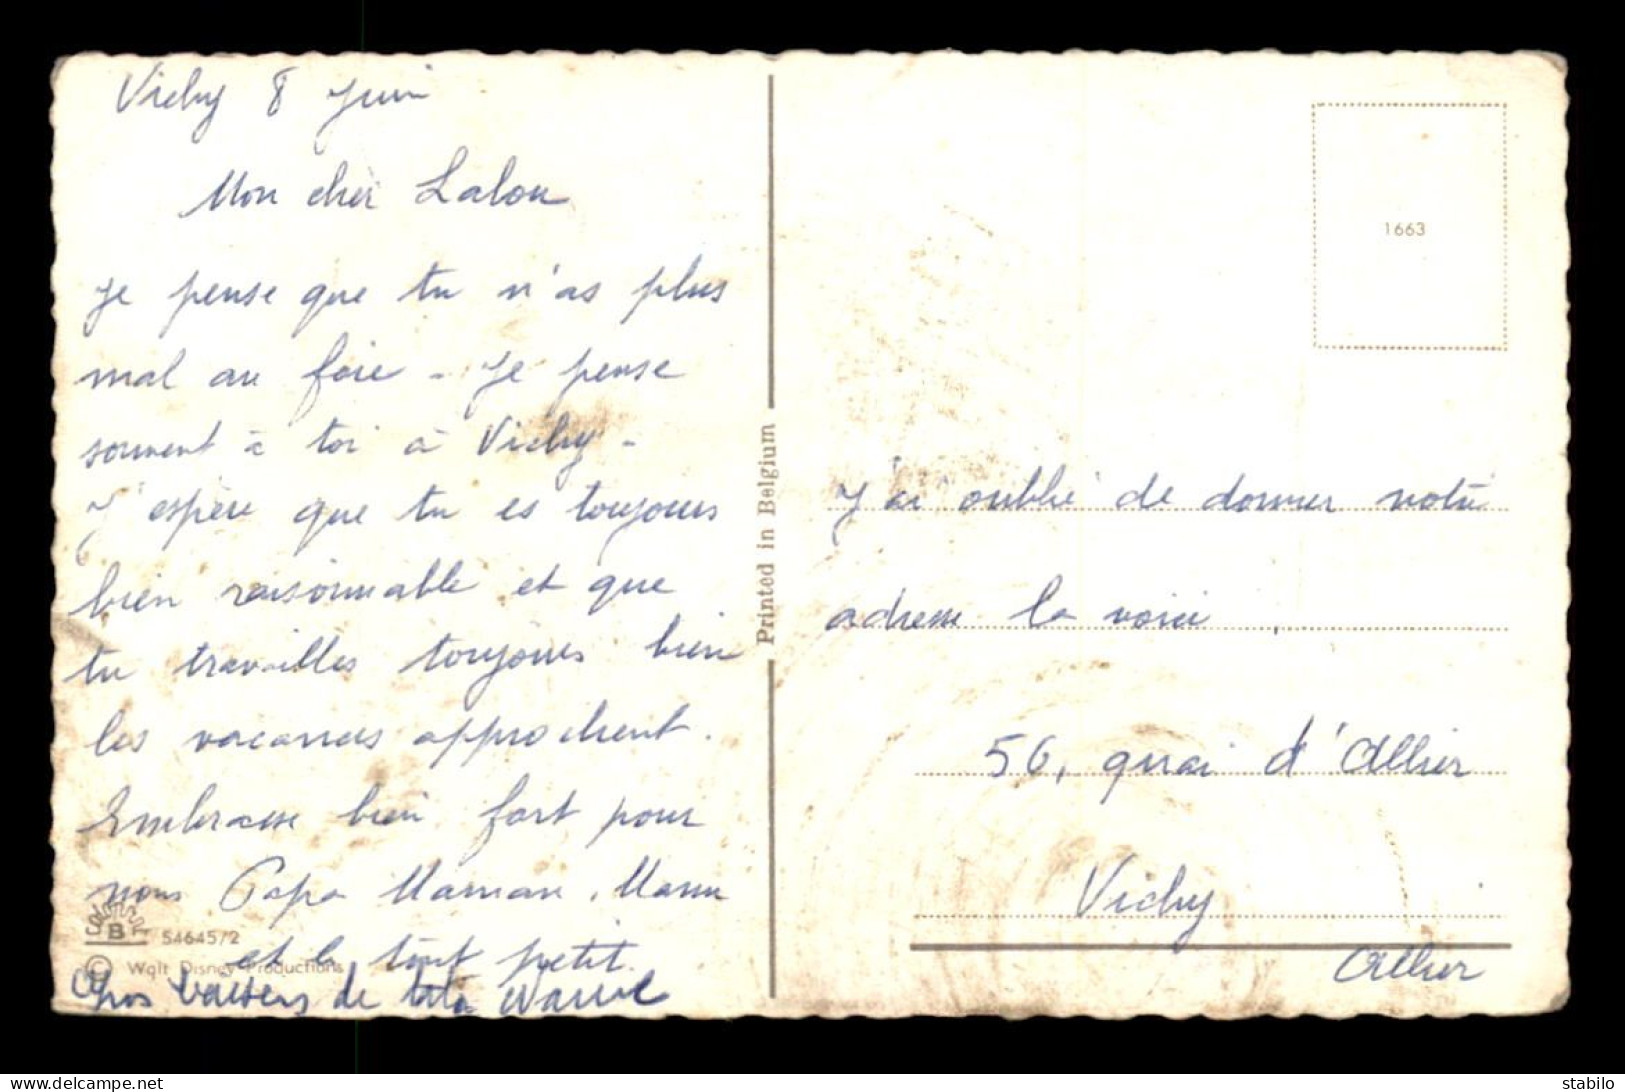 Vichy 8 Juin
Mon cher Lalou
Je pense que tu n'as plus
mal au foie - Je pense
souvent à toi à Vichy -
J'espère que tu es toujours
bien raisonnable et que
tu travailles toujours bien
les vacances approchent.
Embrasse bien fort pour
nous Papa Maman, Manu
et le tout petit.
Gros baisers de tata
B 54645/2
© Walt Disney Productions
Printed in Belgium
1663
J'ai oublié de donner notre
adresse la voici
56, quai d'Allier
Vichy
Allier
Délcampe
stabilo